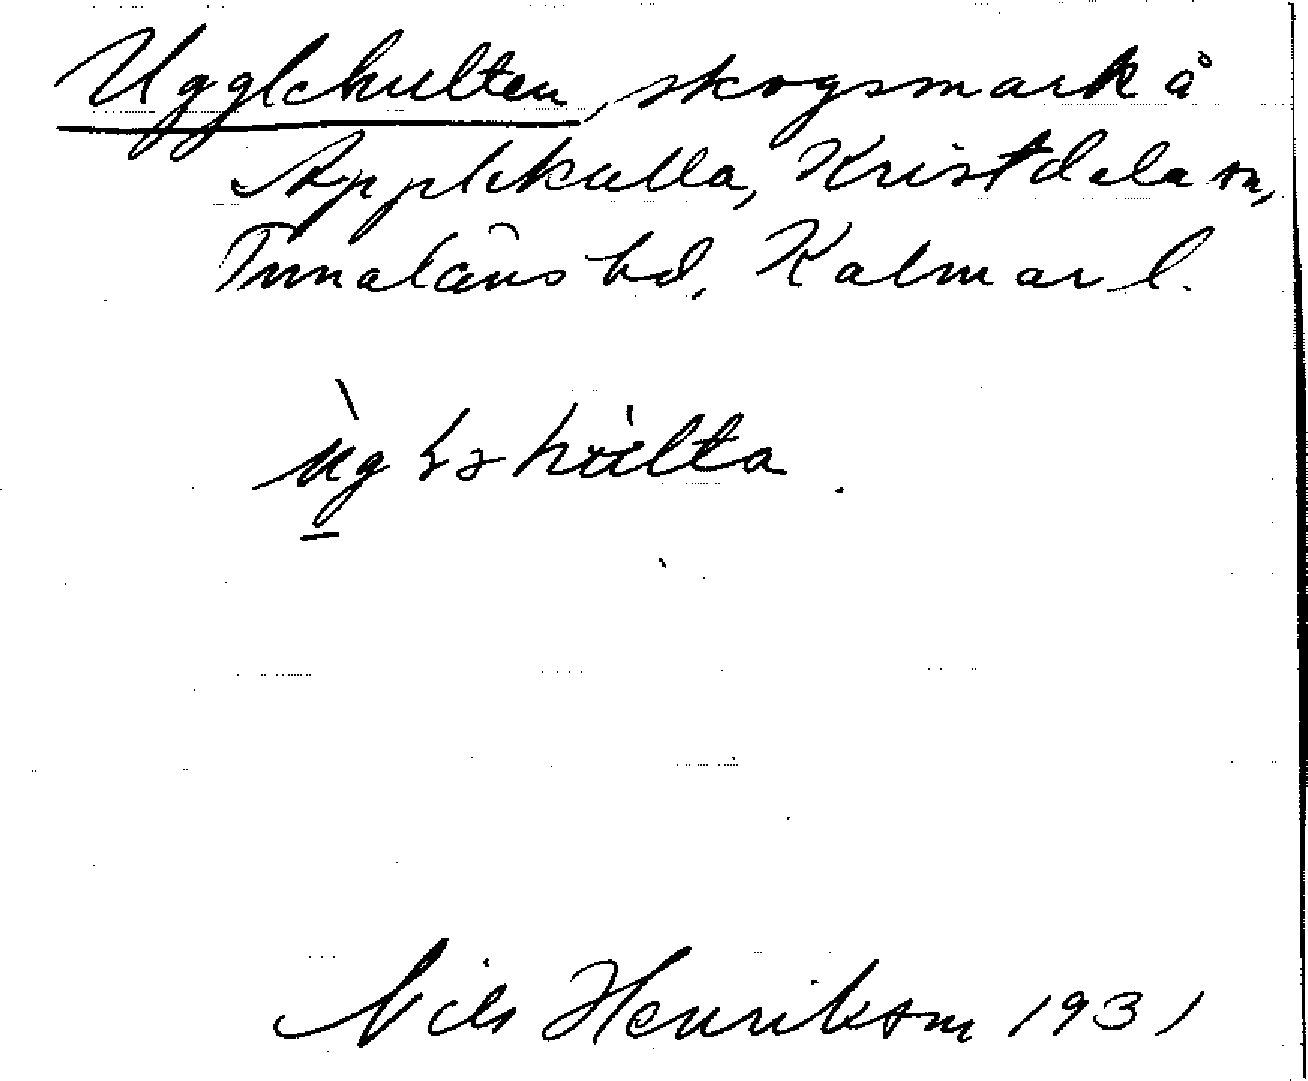 Ugglehulten, skogsmark å
Applekulla, Kristdala sn,
Tunaläns hd, Kalmar l.
Nils Henrikson 1931